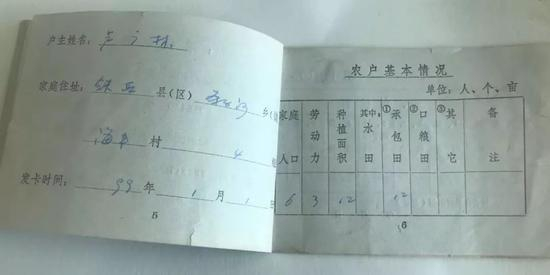 户主姓名：
家庭住址： 县(区) 乡
村 4
发卡时间： 99 年 1 月 1
5
农户基本情况
单位：人、个、亩
家庭人口 劳动力 种植面积 其中：水田 ①承包田 ②口粮田 ③其它 备注
6 3 12 12
6